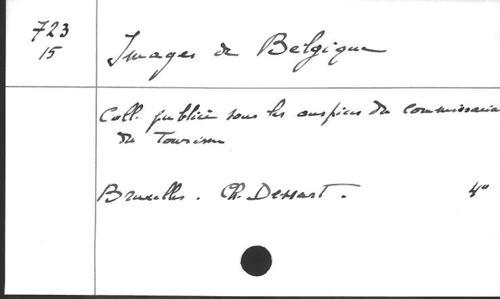 723
15
Images de Belgique
Coll. publiée sous les auspices du Commissaria
du Tourisme
Bruxelles. Ch. Dessart. 4°